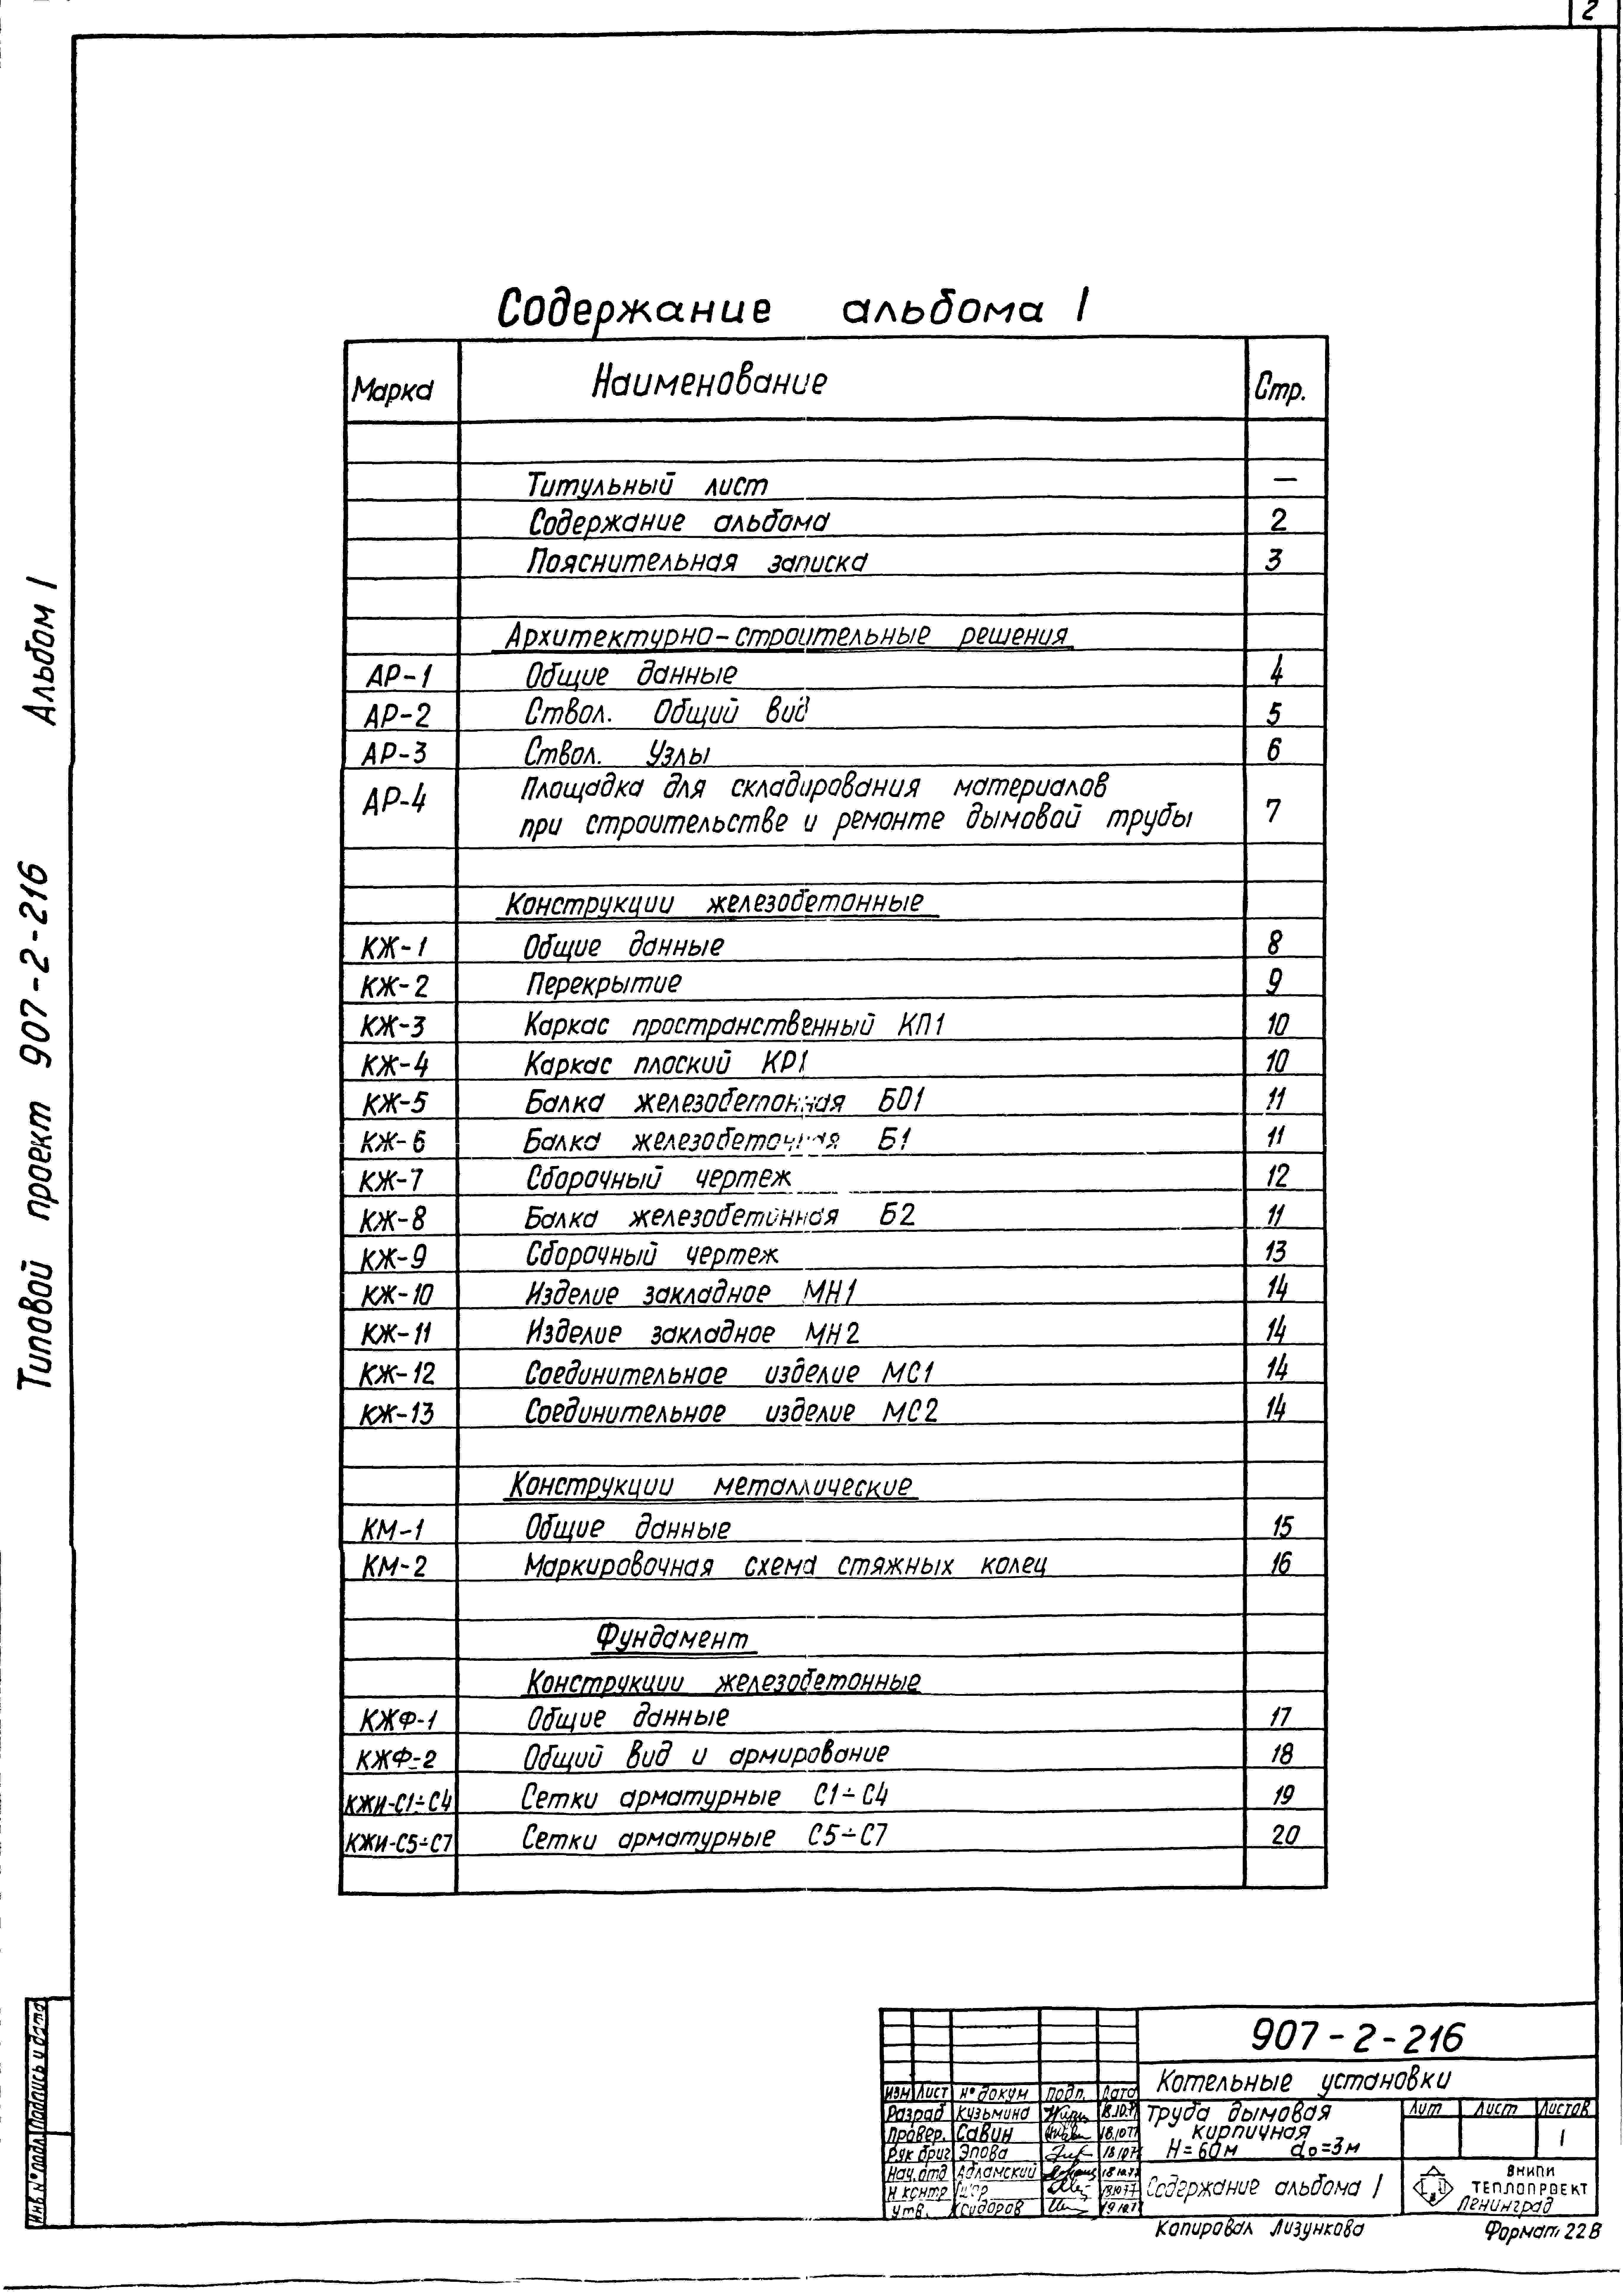 2
Содержание альбома I
Марка Наименование Стр.
Титульный лист —
Содержание альбома 2
Пояснительная записка 3
Архитектурно-строительные решения
АР-1 Общие данные 4
АР-2 Ствол. Общий вид 5
АР-3 Ствол. Узлы 6
АР-4 Площадка для складирования материалов
при строительстве и ремонте дымовой трубы 7
Конструкции железобетонные
КЖ-1 Общие данные 8
КЖ-2 Перекрытие 9
КЖ-3 Каркас пространственный КП1 10
КЖ-4 Каркас плоский КР1 10
КЖ-5 Балка железобетонная Б01 11
КЖ-6 Балка железобетонная Б1 11
КЖ-7 Сборочный чертеж 12
КЖ-8 Балка железобетонная Б2 11
КЖ-9 Сборочный чертеж 13
КЖ-10 Изделие закладное МН1 14
КЖ-11 Изделие закладное МН2 14
КЖ-12 Соединительное изделие МС1 14
КЖ-13 Соединительное изделие МС2 14
Конструкции металлические
КМ-1 Общие данные 15
КМ-2 Маркировочная схема стяжных колец 16
Фундамент
Конструкции железобетонные
КЖФ-1 Общие данные 17
КЖФ-2 Общий вид и армирование 18
КЖИ-С1÷С4 Сетки арматурные С1÷С4 19
КЖИ-С5÷С7 Сетки арматурные С5÷С7 20
Типовой проект 907-2-216 Альбом I
Инв № подл Подпись и дата
907-2-216
Котельные установки
Изм Лист № докум Подп. Дата
Разраб Кузьмина
Провер. Савин 18.10.77
Рук бриг Эпова
Нач. отд Абламский
Н контр
Утв. Ксидоров
Труба дымовая
кирпичная
Н=60м d₀=3м
Лит Лист Листов
1
Содержание альбома I
ВНИПИ
ТЕПЛОПРОЕКТ
Ленинград
Копировал Лизункова Формат 22В